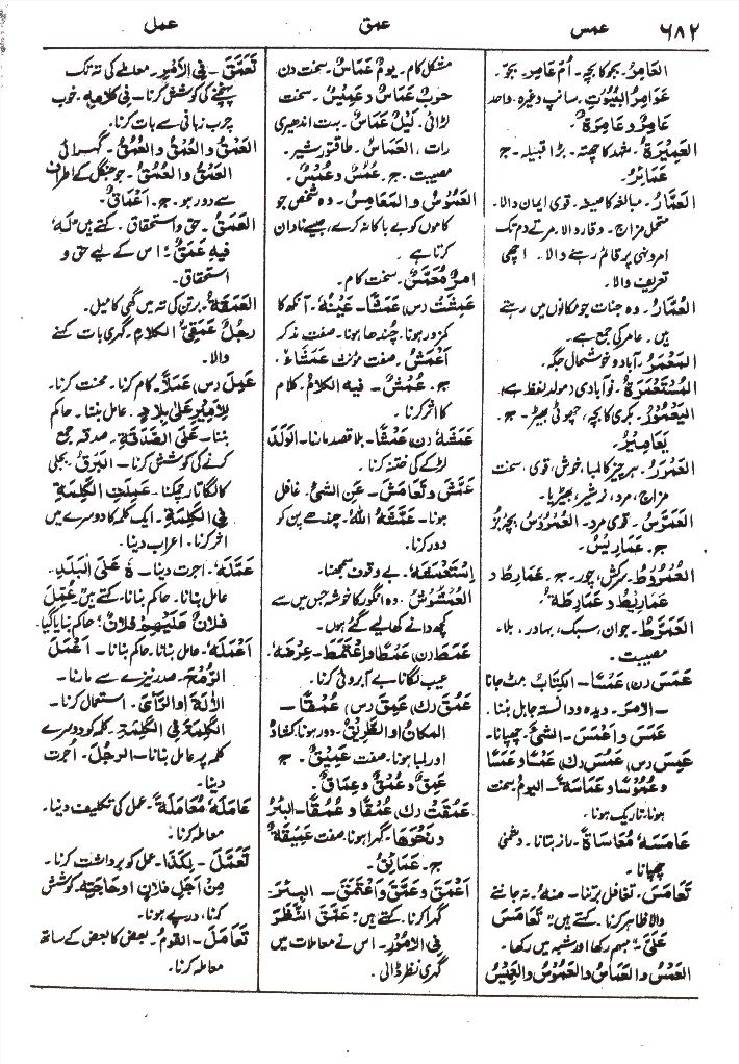 ۶۸۲
عمس
عمق
عمل
العَامِرُ۔ بجو کا بچہ۔ اُمّ عَامِرٍ۔ بجو۔
عَوَامِرُ البُيُوْتِ۔ سانپ وغیرہ۔ واحد
عَامِرٌ و عَامِرَةٌ
العَمِيْرَةُ۔ شہد کا چھتہ۔ بڑا قبیلہ۔ ج
عَمَائِرُ
العَمَّارُ۔ مبالغہ کا صیغہ۔ قوی ایمان والا۔
متحمل مزاج۔ وقار والا۔ مرتے دم تک
امر و نہی پر قائم رہنے والا۔ اچھی
تعریف والا۔
العُمَّارُ۔ وہ جنات جو مکانوں میں رہتے
ہیں۔ عامر کی جمع ہے۔
المَعْمَرُ۔ آباد و خوشحال جگہ۔
المُسْتَعْمَرَةُ۔ نو آبادی (مولد لفظ ہے)
اليَعْمُوْرُ۔ بکری کا بچہ، چھوٹی بھیڑ۔ ج۔
يَعَامِيْرُ
ہر چیز کا لمبا، خوش، قوی، سخت
مزاج، مرد، نر شیر، بھیڑیا۔
العَمَرَّسُ۔ قوی مرد۔ العُمْرُوْسُ۔
ج۔ عَمَارِيْسُ
العُمْرُوْطُ۔ سرکش، چور۔ ج۔ عَمَارِطُ و
عَمَارِيْطُ و عَمَارِطَةٌ
العَمَرَّطُ۔ جوان، سبک، بہادر۔ بلا۔
مصیبت۔
عَمَسَ (ن) عَمْسًا۔ الكِتَابُ۔ مٹ جانا
۔الامرَ۔ دیدہ و دانستہ جاہل بننا۔
عَمَسَ و اَعْمَسَ۔ الشئَ۔ چھپانا۔
عَمِسَ (س) عَمُسَ (ك) عَمْسًا و عَمَسًا
و عُمُوْسًا و عَمَاسَةً۔ اليومُ۔ سخت
ہونا، تاریک ہونا۔
عَامَسَهُ مُعَامَسَةً۔ راز بتانا۔ دشمنی
چھپانا۔
تَعَامَسَ۔ تغافل برتنا۔ منهُ۔ نہ جاننے
والا ظاہر کرنا۔ کہتے ہیں: تَعَامَسَ
عَلَيَّ = مبہم رکھا اور شبہ میں رکھا۔
العَمْسُ و العَمَاسُ و العَمُوْسُ و العَمِيْسُ
مشکل کام۔ يومٌ عَمَاسٌ۔ سخت دن
حربٌ عَمَاسٌ و عَمِيْسٌ۔ سخت
لڑائی۔ لَيْلٌ عَمَاسٌ۔ بہت اندھیری
رات۔ العَمَاسُ۔ طاقتور شیر۔
مصیبت۔ ج۔ عُمُسٌ و عُمْسٌ۔
العَمُوْسُ و المُتَعَامِسُ۔ وہ شخص جو
کاموں کو بے باکانہ کرے، جیسے نادان
کرتا ہے۔
امرٌ مُعَمَّسٌ۔ سخت کام۔
عَمِشَتْ (س) عَمَشًا۔ عَيْنُهُ۔ آنکھ کا
کمزور ہونا۔ چندھا ہونا۔ صفت مذکر
اَعْمَشُ۔ صفت مؤنث عَمْشَاءُ۔
ج۔ عُمْشٌ۔ فيه الكلامُ۔ کلام
کا اثر کرنا۔
عَمَشَهُ (ن) عَمْشًا۔ بلا قصد مارنا۔ الوَلَدَ
لڑکے کی ختنہ کرنا۔
عَمَّشَ و تَعَامَشَ۔ عَنِ الشئِ۔ غافل
ہونا۔ عَمَّشَهُ اللهُ۔ چندھے پن کو
دور کرنا۔
اِسْتَعْمَشَهُ۔ بے وقوف سمجھنا۔
العُمْشُوْشُ۔ وہ انگور کا خوشہ جس میں سے
کچھ دانے کھا لیے گئے ہوں۔
عَمَطَ (ن) عَمْطًا و اعْتَمَطَ۔ عِرْضَهُ۔
عیب لگانا بے آبروئی کرنا۔
عَمُقَ (ك) عَمِقَ (س) عُمْقًا۔
المكانُ او الطَّرِيْقُ۔ دور ہونا، کشادہ
اور لمبا ہونا۔ صفت عَمِيْقٌ۔ ج
عُمُقٌ و عُمْقٌ و عِمَاقٌ۔
عَمُقَتْ (ك) عُمْقًا و عُمُقًا۔ البئرُ
و نَحْوُهَا۔ گہرا ہونا۔ صفت عَمِيْقَةٌ
ج۔ عَمَائِقُ۔
اَعْمَقَ و عَمَّقَ و اعْتَمَقَ۔ البئرَ۔
گہرا کرنا۔ کہتے ہیں: عَمَّقَ النَّظَرَ
فِي الاُمُوْرِ۔ اس نے معاملات میں
گہری نظر ڈالی۔
تَعَمَّقَ۔ فِي الاَمْرِ۔ معاملے کی تہ تک
پہنچنے کی کوشش کرنا۔ فِي كَلَامِهِ۔ خوب
چرب زبانی سے بات کرنا۔
العَمْقُ و العُمْقُ و العُمُقُ۔ گہرائی
العَمْقُ و العُمْقُ۔ جو جنگل کے اطراف
سے دور ہو۔ ج۔ اَعْمَاقٌ۔
العَمَقُ۔ حق و استحقاق۔ کہتے ہیں "لَهُ
فِيهِ عَمَقٌ = اس کے لیے حق و
استحقاق۔
العَمَقَةُ۔ برتن کی تہ میں گھی کا میل۔
رجلٌ عُمَقِيُّ الكَلَامِ۔ گہری بات کہنے
والا۔
عَمِلَ (س) عَمَلًا۔ کام کرنا۔ محنت کرنا۔
لِلْاَمِيْرِ عَلٰى بِلَادٍ۔ عامل بننا۔ حاکم
بننا۔ عَلَى الصَّدَقَةِ۔ صدقہ جمع
کرنے کی کوشش کرنا۔ البَرْقُ۔ بجلی
کا لگاتار چمکنا۔ عَمِلَتِ الكَلِمَةُ
فِي الكَلِمَةِ۔ ایک کلمہ کا دوسرے میں
اثر کرنا۔ اعراب دینا۔
عَمَّلَهُ۔ اجرت دینا۔ هُ عَلَى البَلَدِ۔
عامل بنانا۔ حاکم بنانا۔ کہتے ہیں: عُمِّلَ
فُلَانٌ عَلَيْهِمْ فُلَانٌ: حاکم بنایا گیا۔
اَعْمَلَهُ۔ عامل بنانا۔ حاکم بنانا۔ اَعْمَلَ
الرُّمْحَ۔ صدر نیزے سے مارنا۔
الآلَةَ او الرَّاىَ۔ استعمال کرنا۔
الكَلِمَةَ فِي الكَلِمَةِ۔ کلمہ کو دوسرے
کلمہ پر عامل بنانا۔ الرجلَ۔ اُجرت
دینا۔
عَامَلَهُ مُعَامَلَةً۔ عمل کی تکلیف دینا۔
معاملہ کرنا۔
تَعَمَّلَ۔ لِكَذَا۔ عمل کو برداشت کرنا۔
مِنْ اَجْلِ فُلَانٍ او حَاجَتِهِ۔ کوشش
کرنا، درپے ہونا۔
تَعَامَلَ۔ القومُ۔ بعض کا بعض کے ساتھ
معاملہ کرنا۔